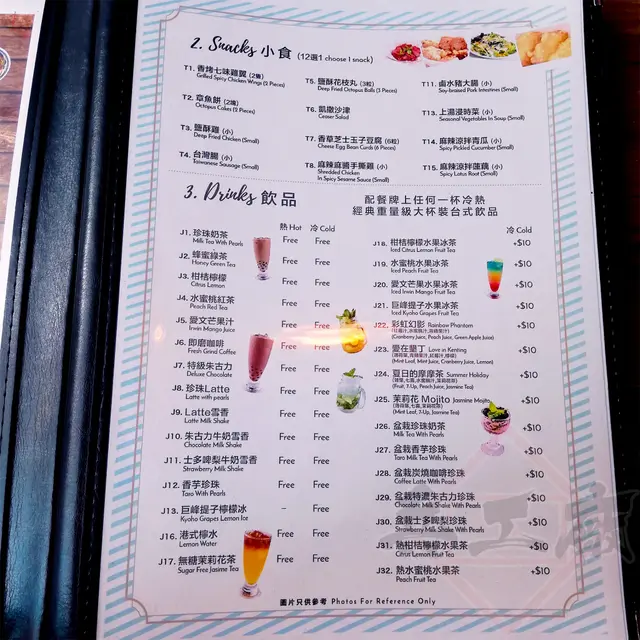 2. Snacks 小食 (12選1 choose 1 snack)
T1. 香烤七味雞翼 (2隻)
Grilled Spicy Chicken Wings (2 Pieces)
T2. 章魚餅 (2塊)
Octopus Cakes (2 Pieces)
T3. 鹽酥雞 (小)
Deep Fried Chicken (Small)
T4. 台灣腸 (小)
Taiwanese Sausage (Small)
T5. 鹽酥花枝丸 (3粒)
Deep Fried Octopus Balls (3 Pieces)
T6. 凱撒沙津
Ceaser Salad
T7. 香草芝士玉子豆腐 (6粒)
Cheese Egg Bean Curds (6 Pieces)
T8. 麻辣麻醬手撕雞 (小)
Shredded Chicken
In Spicy Sesame Sauce (Small)
T11. 鹵水豬大腸 (小)
Soy-braised Pork Intestines (Small)
T13. 上湯浸時菜 (小)
Seasonal Vegetables In Soup (Small)
T14. 麻辣涼拌青瓜 (小)
Spicy Pickled Cucumber (Small)
T15. 麻辣涼拌蓮藕 (小)
Spicy Lotus Root (Small)
3. Drinks 飲品
配餐牌上任何一杯冷熱
經典重量級大杯裝台式飲品
熱 Hot 冷 Cold
J1. 珍珠奶茶 Free Free
Milk Tea With Pearls
J2. 蜂蜜綠茶 Free Free
Honey Green Tea
J3. 柑桔檸檬 Free Free
Citrus Lemon
J4. 水蜜桃紅茶 Free Free
Peach Red Tea
J5. 愛文芒果汁 Free Free
Irwin Mango Juice
J6. 即磨咖啡 Free Free
Fresh Grind Coffee
J7. 特級朱古力 Free Free
Deluxe Chocolate
J8. 珍珠Latte Free Free
Latte with pearls
J9. Latte雪香 Free Free
Latte Milk Shake
J10. 朱古力牛奶雪香 Free Free
Chocolate Milk Shake
J11. 士多啤梨牛奶雪香 Free Free
Strawberry Milk Shake
J12. 香芋珍珠 Free Free
Taro With Pearls
J13. 巨峰提子檸檬冰 – Free
Kyoho Grapes Lemon Ice
J16. 港式檸水 Free Free
Lemon Water
J17. 無糖茉莉花茶 Free Free
Sugar Free Jasime Tea
冷 Cold
J18. 柑桔檸檬水果冰茶 +$10
Iced Citrus Lemon Fruit Tea
J19. 水蜜桃水果冰茶 +$10
Iced Peach Fruit Tea
J20. 愛文芒果水果冰茶 +$10
Iced Irwin Mango Fruit Tea
J21. 巨峰提子水果冰茶 +$10
Iced Kyoho Grapes Fruit Tea
J22. 彩虹幻影 Rainbow Phantom +$10
(Cranberry Juice, Peach Juice, Green Apple Juice)
J23. 愛在墾丁 Love in Kenting +$10
(Mint Leaf, Mint Juice, Cranberry Juice, Lemon)
J24. 夏日的摩摩茶 Summer Holiday +$10
(Fruit, 7-Up, Peach Juice, Jasmine Tea)
J25. 茉莉花 Mojito Jasmine Mojito +$10
(薄荷葉,七喜,茉莉花茶)
(Mint Leaf, 7-Up, Jasmine Tea)
J26. 盆栽珍珠奶茶 +$10
Milk Tea With Pearls
J27. 盆栽香芋珍珠 +$10
Taro Milk Tea With Pearls
J28. 盆栽炭燒咖啡珍珠 +$10
Coffee Latte With Pearls
J29. 盆栽特濃朱古力珍珠 +$10
Chocolate Milk Shake With Pearls
J30. 盆栽士多啤梨珍珠 +$10
Strawberry Milk Shake With Pearls
J31. 熱柑桔檸檬水果茶 +$10
Citrus Lemon Fruit Tea
J32. 熱水蜜桃水果茶 +$10
Peach Fruit Tea
圖片只供參考 Photos For Reference Only